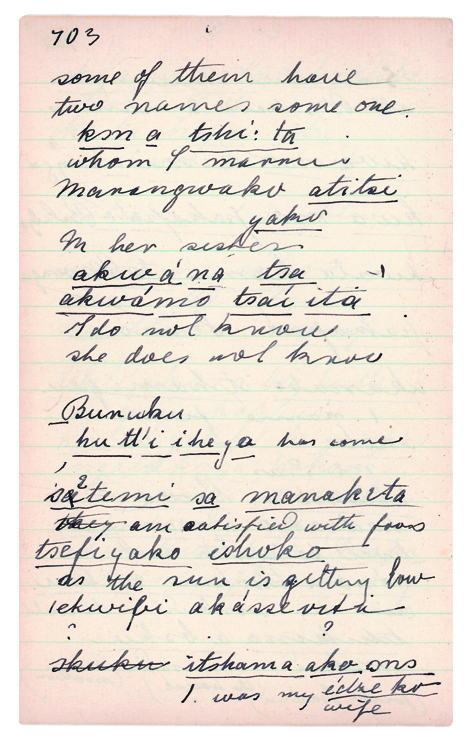 703
some of them have
two names some one
km a tshi: ta
whom I marry
Marangwako atitsi
yako
In her sister
akwá ná tsa
akwámo tsai ita
I do not know
she does not know
Buruku
hu tl'i iheya has come
temi sa manaketa
they am satisfied with food
tsefiyako ishoko
as the sun is getting low
akásse vita
?
skuku itshama ako ons
I was my édze ko
wife